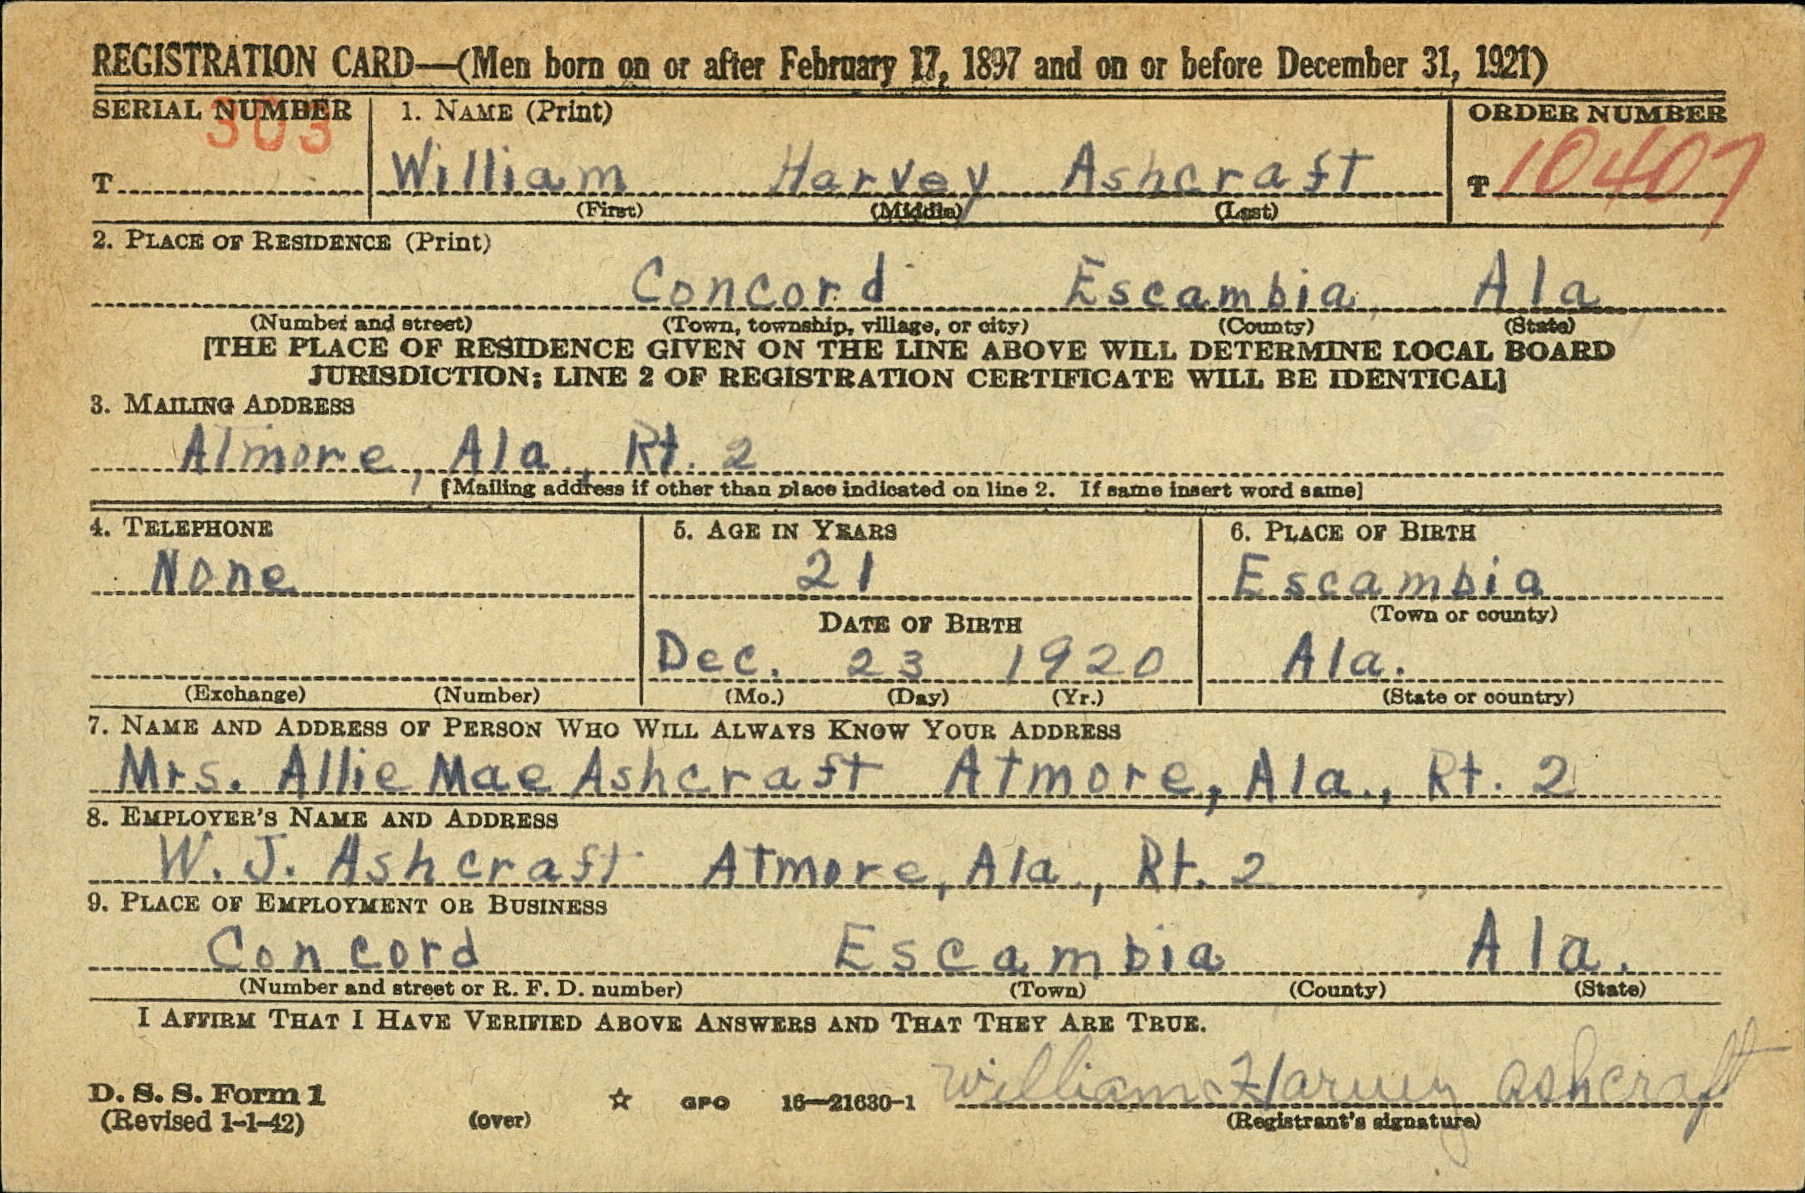 REGISTRATION CARD—(Men born on or after February 17, 1897 and on or before December 31, 1921)
SERIAL NUMBER 1. NAME (Print) ORDER NUMBER
303
T William Harvey Ashcraft T 10407
(First) (Middle) (Last)
2. PLACE OF RESIDENCE (Print)
Concord Escambia, Ala
(Number and street) (Town, township, village, or city) (County) (State)
[THE PLACE OF RESIDENCE GIVEN ON THE LINE ABOVE WILL DETERMINE LOCAL BOARD
JURISDICTION; LINE 2 OF REGISTRATION CERTIFICATE WILL BE IDENTICAL]
3. MAILING ADDRESS
Atmore, Ala., Rt. 2
[Mailing address if other than place indicated on line 2. If same insert word same]
4. TELEPHONE 5. AGE IN YEARS 6. PLACE OF BIRTH
None 21 Escambia
DATE OF BIRTH (Town or county)
Dec. 23 1920 Ala.
(Exchange) (Number) (Mo.) (Day) (Yr.) (State or country)
7. NAME AND ADDRESS OF PERSON WHO WILL ALWAYS KNOW YOUR ADDRESS
Mrs. Allie Mae Ashcraft Atmore, Ala., Rt. 2
8. EMPLOYER'S NAME AND ADDRESS
W. J. Ashcraft Atmore, Ala., Rt. 2
9. PLACE OF EMPLOYMENT OR BUSINESS
Concord Escambia Ala.
(Number and street or R. F. D. number) (Town) (County) (State)
I AFFIRM THAT I HAVE VERIFIED ABOVE ANSWERS AND THAT THEY ARE TRUE.
D. S. S. Form 1 William Harvey Ashcraft
(Revised 1-1-42) (over) ☆ GPO 16—21630-1 (Registrant's signature)